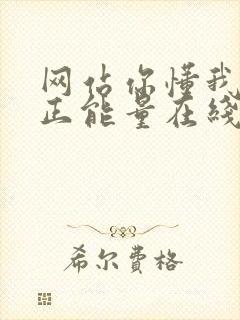 网站你懂我
正能量在线
希尔费格